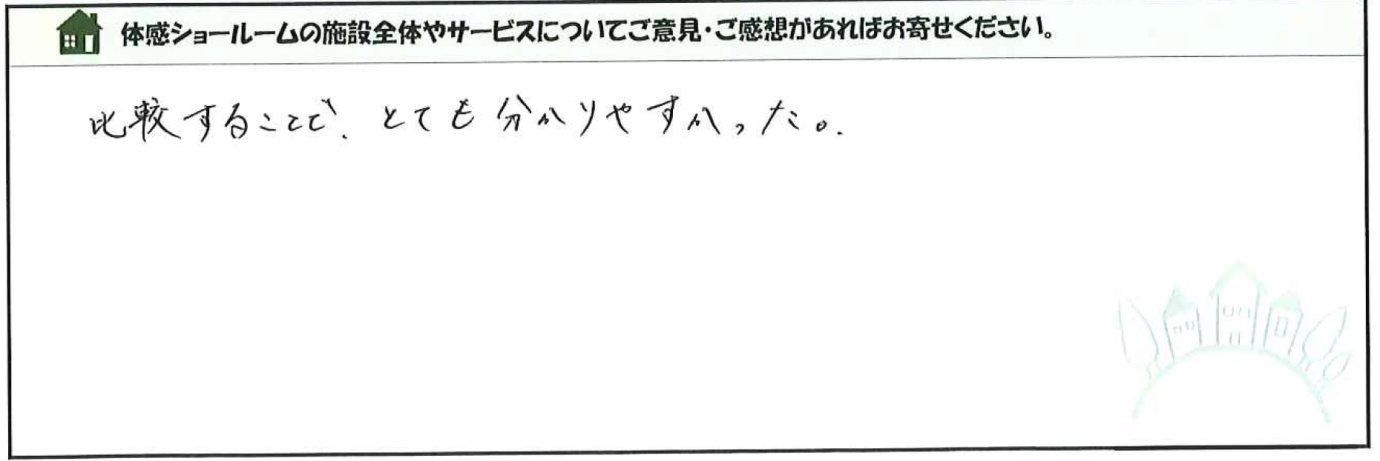 体感ショールームの施設全体やサービスについてご意見・ご感想があればお寄せください。
比較することで、とても分かりやすかった。